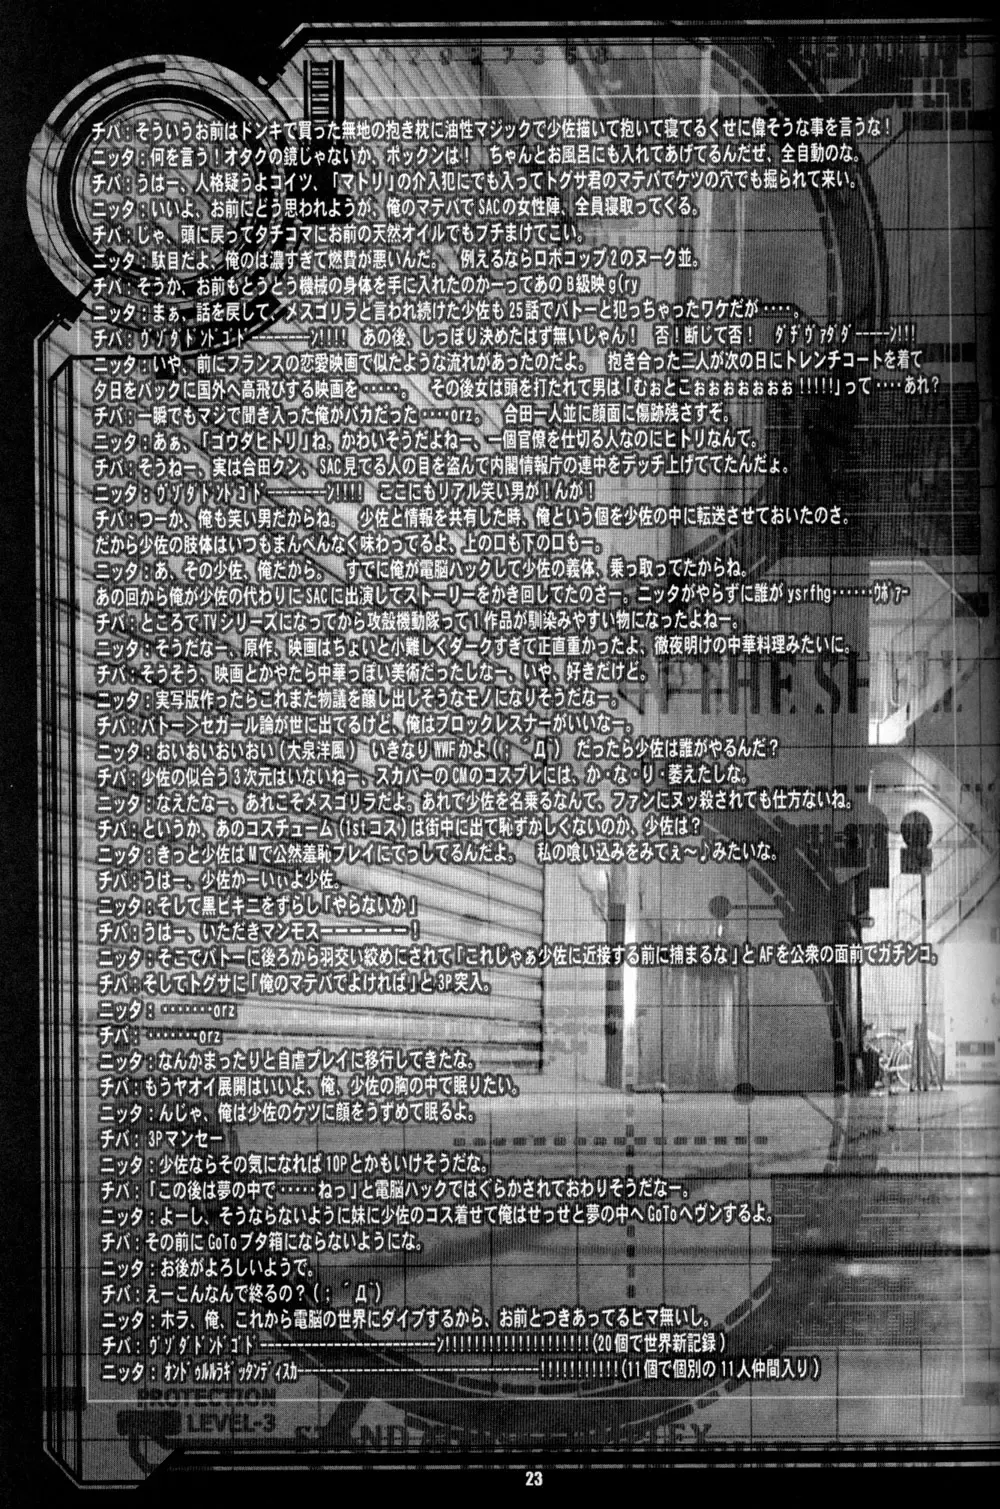 チバ：そういうお前はドンキで買った無地の抱き枕に油性マジックで少佐描いて抱いて寝てるくせに偉そうな事を言うな！
ニッタ：何を言う！オタクの鏡じゃないか、ボックンは！　ちゃんとお風呂にも入れてあげてるんだぜ、全自動のな。
チバ：うはー、人格疑うよコイツ、「マトリ」の介入犯にでも入ってトグサ君のマテバでケツの穴でも掘られて来い。
ニッタ：いいよ、お前にどう思われようが、俺のマテバでSACの女性陣、全員寝取ってくる。
チバ：じゃ、頭に戻ってタチコマにお前の天然オイルでもブチまけてこい。
ニッタ：駄目だよ、俺のは濃すぎて燃費が悪いんだ。　例えるならロボコップ2のヌーク並。
チバ：そうか、お前もとうとう機械の身体を手に入れたのかーってあのB級映g(ry
ニッタ：まぁ、話を戻して、メスゴリラと言われ続けた少佐も25話でバトーと犯っちゃったワケだが・・・・。
チバ：ｳｿﾞﾀﾞﾄﾝﾄﾞｺﾞﾄﾞ---------ﾝ!!!!　あの後、しっぽり決めたはず無いじゃん！　否！断じて否！　ﾀﾞﾁﾞｳﾞｧﾀﾞﾀﾞ-----ﾝ!!!
ニッタ：いや、前にフランスの恋愛映画で似たような流れがあったのだよ。　抱き合った二人が次の日にトレンチコートを着て
夕日をバックに国外へ高飛びする映画を・・・・・。　その後女は頭を打たれて男は「むぉとこぉぉぉぉぉぉぉ!!!!!」って・・・・あれ？
チバ：一瞬でもマジで聞き入った俺がバカだった・・・・orz。　合田一人並に顔面に傷跡残さすぞ。
ニッタ：あぁ、「ゴウダヒトリ」ね。かわいそうだよねー、一個官僚を仕切る人なのにヒトリなんて。
チバ：そうねー、実は合田クン、SAC見てる人の目を盗んで内閣情報庁の連中をデッチ上げててたんだょ。
ニッタ：ｳﾞｿﾞﾀﾞﾄﾝﾄﾞｺﾞﾄﾞ--------ﾝ!!!!　ここにもリアル笑い男が！んが！
チバ：つーか、俺も笑い男だからね。　少佐と情報を共有した時、俺という個を少佐の中に転送させておいたのさ。
だから少佐の肢体はいつもまんべんなく味わってるよ、上の口も下の口もー。
ニッタ：あ、その少佐、俺だから。　すでに俺が電脳ハックして少佐の義体、乗っ取ってたからね。
あの回から俺が少佐の代わりにSACに出演してストーリーをかき回してたのさー。ニッタがやらずに誰がysrfhg・・・・・・ｳﾎﾞｧｰ
チバ：ところでTVシリーズになってから攻殻機動隊って1作品が馴染みやすい物になったよねー。
ニッタ：そうだなー、原作、映画はちょいと小難しくダークすぎて正直重かったよ、徹夜明けの中華料理みたいに。
チバ：そうそう、映画とかやたら中華っぽい美術だったしなー、いや、好きだけど。
ニッタ：実写版作ったらこれまた物議を醸し出しそうなモノになりそうだなー。
チバ：バトー＞セガール論が世に出てるけど、俺はブロックレスナーがいいなー。
ニッタ：おいおいおいおい（大泉洋風）　いきなりWWFかよ(；゜Д゜)　だったら少佐は誰がやるんだ？
チバ：少佐の似合う3次元はいないねー、スカパーのCMのコスプレには、か・な・り・萎えたしな。
ニッタ：なえたなー、あれこそメスゴリラだよ。あれで少佐を名乗るなんて、ファンにヌッ殺されても仕方ないね。
チバ：というか、あのコスチューム（1stコス）は街中に出て恥ずかしくないのか、少佐は？
ニッタ：きっと少佐はMで公然羞恥プレイにてっしてるんだよ。　私の喰い込みをみてぇ～♪みたいな。
チバ：うはー、少佐かーいぃよ少佐。
ニッタ：そして黒ビキニをずらし「やらないか」
チバ：うはー、いただきマンモスーーーーーーー！
ニッタ：そこでバトーに後ろから羽交い絞めにされて「これじゃぁ少佐に近接する前に捕まるな」とAFを公衆の面前でガチンコ。
チバ：そしてトグサに「俺のマテバでよければ」と3P突入。
ニッタ：・・・・・・・orz
チバ：・・・・・・・・orz
ニッタ：なんかまったりと自虐プレイに移行してきたな。
チバ：もうヤオイ展開はいいよ、俺、少佐の胸の中で眠りたい。
ニッタ：んじゃ、俺は少佐のケツに顔をうずめて眠るよ。
チバ：3Pマンセー
ニッタ：少佐ならその気になれば10Pとかもいけそうだな。
チバ：「この後は夢の中で・・・・・ねっ」と電脳ハックではぐらかされておわりそうだなー。
ニッタ：よーし、そうならないように妹に少佐のコス着せて俺はせっせと夢の中へGoToヘヴンするよ。
チバ：その前にGoToブタ箱にならないようにな。
ニッタ：お後がよろしいようで。
チバ：えーこんなんで終るの？(；´Д`)
ニッタ：ホラ、俺、これから電脳の世界にダイブするから、お前とつきあってるヒマ無いし。
チバ：ｳﾞｿﾞﾀﾞﾄﾝﾄﾞｺﾞﾄﾞ------------------------ﾝ!!!!!!!!!!!!!!!!!!!!(20個で世界新記録)
ニッタ：ｵﾝﾄﾞｩﾙﾙﾗｷﾞｯﾀﾝﾃﾞｨｽｶ--------------------------------!!!!!!!!!!!(11個で個別の11人仲間入り)
PROTECTION
LEVEL-3
23